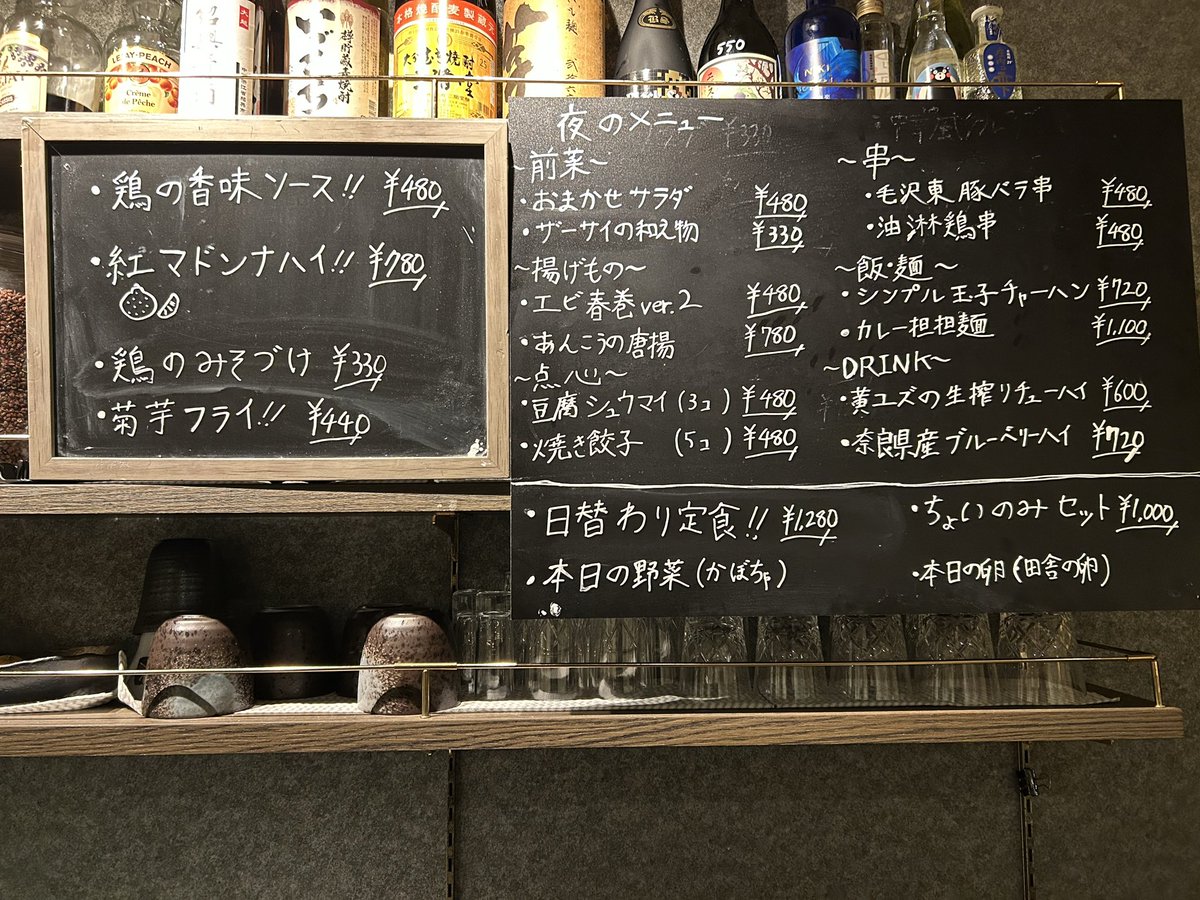 LEJAY-PEACH
Crème de Pêche
本格焼酎 麦製蔵
25
550
NIKI
・鶏の香味ソース!! ¥480
・紅マドンナハイ!! ¥780
・鶏のみそづけ ¥330
・菊芋フライ!! ¥440
夜のメニュー
¥330
~前菜~
・おまかせサラダ ¥480
・ザーサイの和え物 ¥330
~揚げもの~
・エビ春巻ver.2 ¥480
・あんこうの唐揚 ¥780
~点心~
・豆腐シュウマイ(3コ) ¥480
・焼き餃子 (5コ) ¥480
~串~
・毛沢東豚バラ串 ¥480
・油淋鶏串 ¥480
~飯・麺~
・シンプル玉子チャーハン ¥720
・カレー担担麺 ¥1,100
~DRINK~
・黄ユズの生搾リチューハイ ¥600
・奈良県産ブルーベリーハイ ¥720
・日替わり定食!! ¥1,280
・ちょいのみセット ¥1,000
・本日の野菜(かぼちゃ)
・本日の卵(田舎の卵)